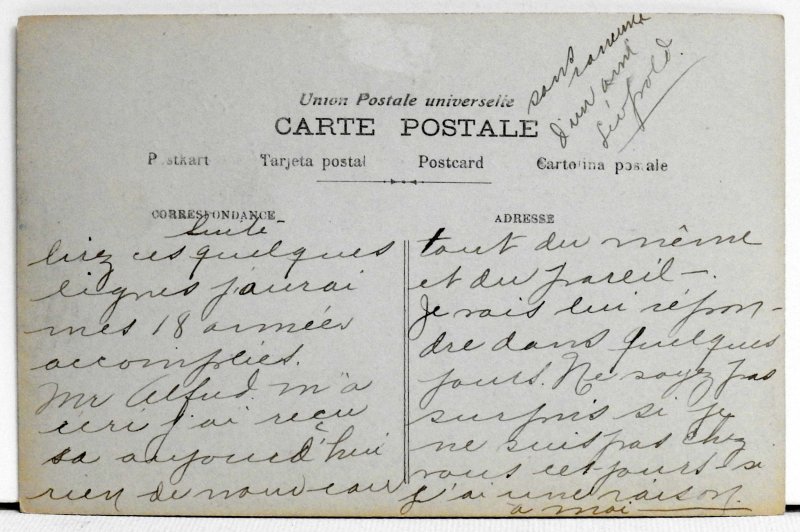 sans rancune
d'un ami
Léopold.
Union Postale universelle
CARTE POSTALE
Postkart Tarjeta postal Postcard Cartolina postale
CORRESPONDANCE
ADRESSE
Suite
lirez ces quelques
lignes j'aurai
mes 18 années
accomplies.
Mr Alfred m'a
écri j'ai reçu
sa aujourd'hui
rien de nouveau
tout du même
et du pareil -.
Je vais lui répon-
dre dans quelques
jours. Ne soyez pas
surpris si je
ne suis pas chez
vous ces jours si
j'ai une raison
a moi